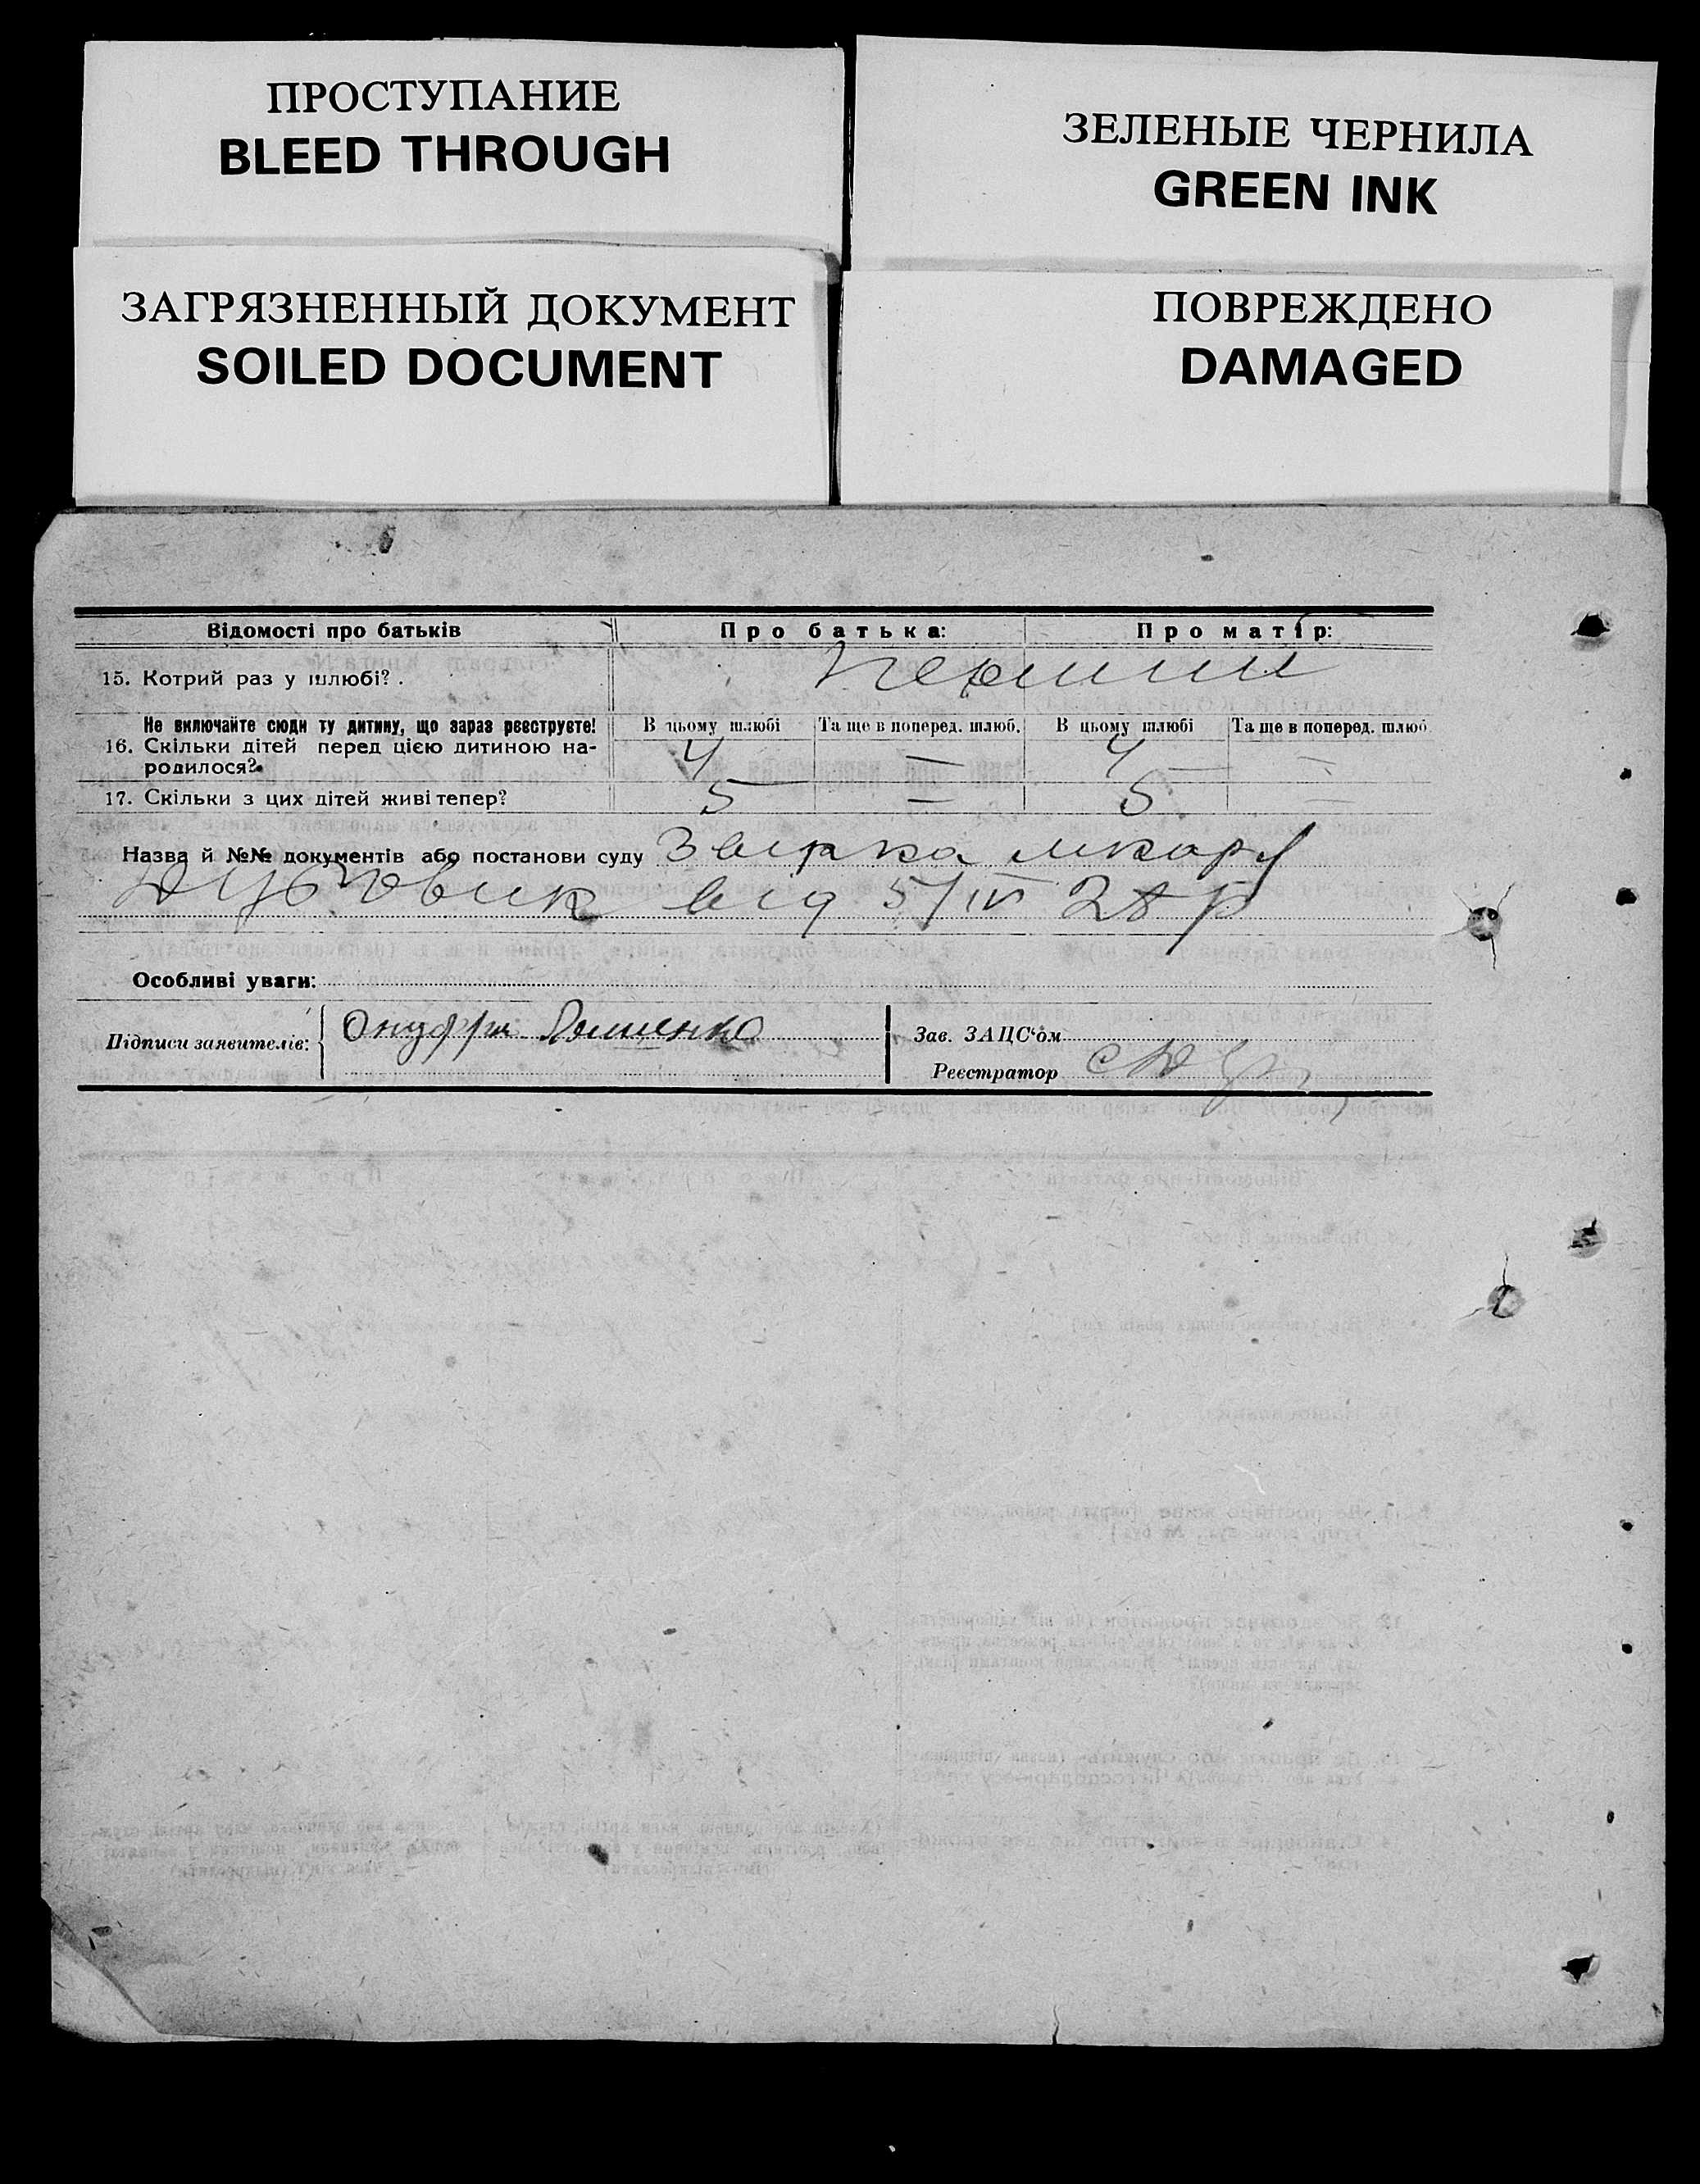 ПРОСТУПАНИЕ
BLEED THROUGH
ЗЕЛЕНЫЕ ЧЕРНИЛА
GREEN INK
ЗАГРЯЗНЕННЫЙ ДОКУМЕНТ
SOILED DOCUMENT
ПОВРЕЖДЕНО
DAMAGED
Відомості про батьків Про батька: Про матір:
15. Котрий раз у шлюбі? . перший
Не включайте сюди ту дитину, що зараз реєструєте! В цьому шлюбі Та ще в поперед. шлюб. В цьому шлюбі Та ще в поперед. шлюб
16. Скільки дітей перед цією дитиною на-
родилося? 4 — 4 —
17. Скільки з цих дітей живі тепер? 5 — 5 —
Назва й №№ документів або постанови суду
від 5/IV 28 р
Особливі уваги:
Підписи заявителів: Онуфрій
Зав. ЗАЦС‘ом
Реєстратор